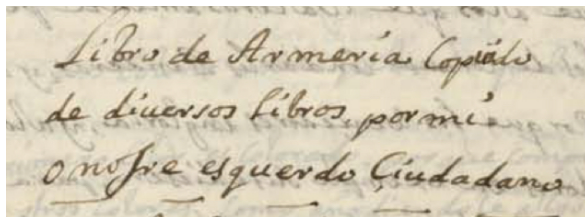 Libro de Armeria Copialo
de diuersos libros por mi
onofre esquerdo Çiudadano